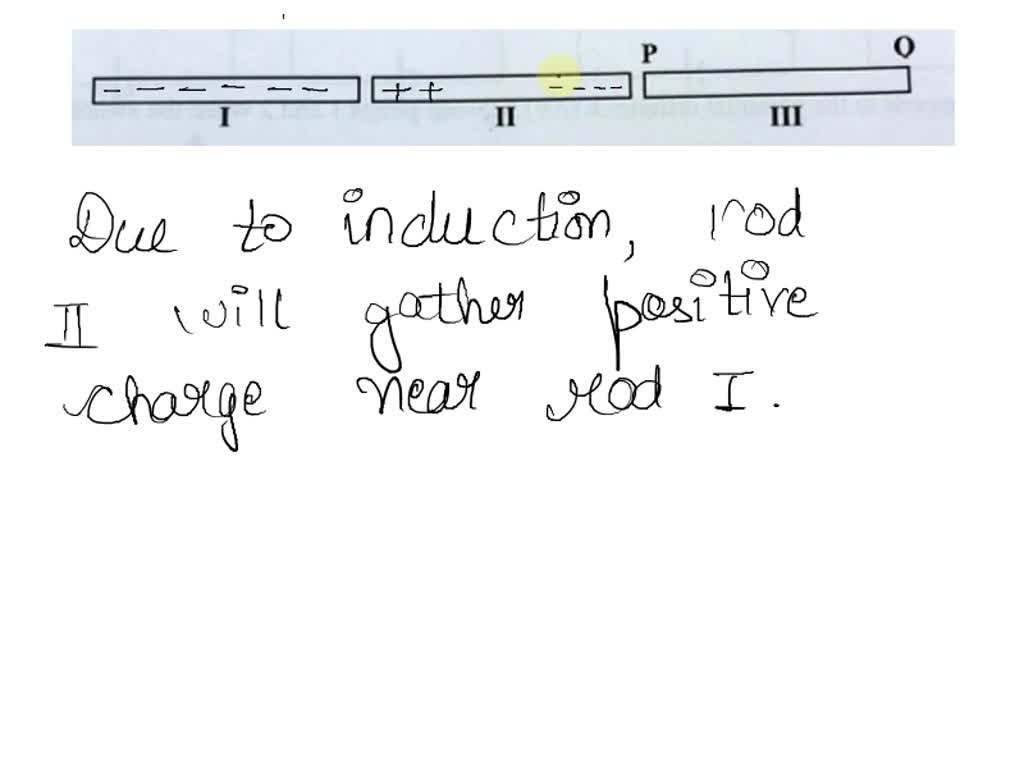 P Q
I II III
Due to induction, rod
II will gather positive
charge near rod I.